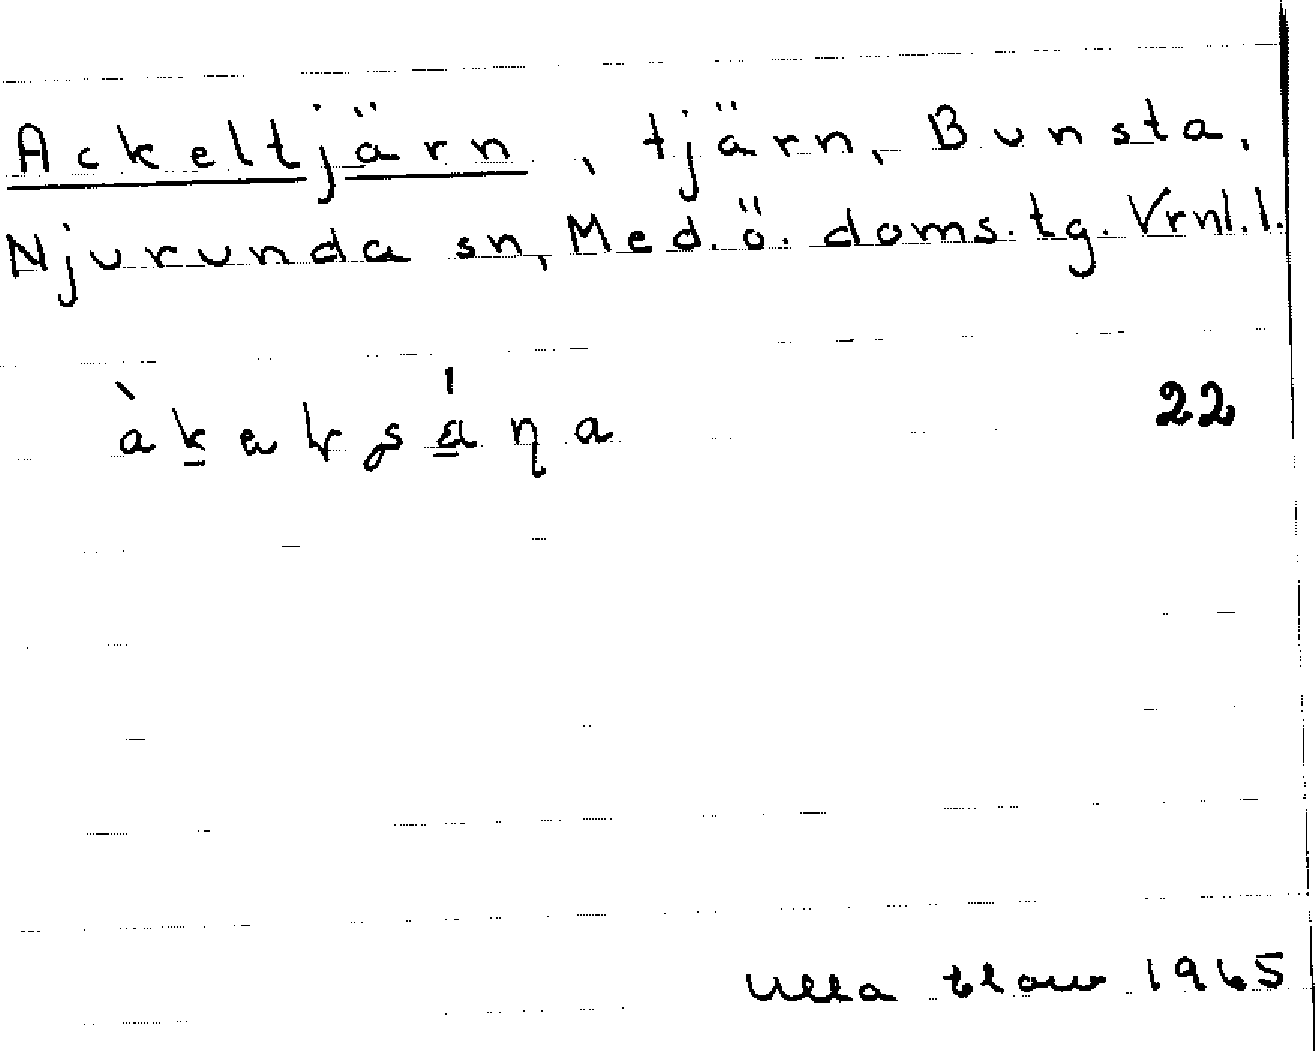 Ackeltjärn, tjärn, Bunsta,
Njurunda sn, Med. ö. doms. tg. Vrnl. l.
22
Ulla 1965